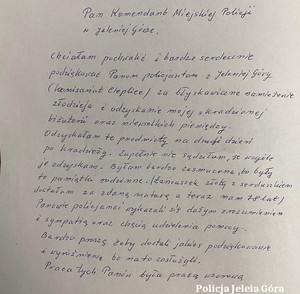 Pan Komendant Miejskiej Policji
w Jeleniej Górze.
Chciałam pochwalić i bardzo serdecznie
podziękować Panom policjantom z Jeleniej Góry
(Komisariat Cieplice) za błyskawiczne namierzenie
złodzieja i odzyskanie mojej skradzionej
biżuterii oraz niewielkich pieniędzy.
Odzyskałam te przedmioty na drugi dzień
po kradzieży. Zupełnie nie sądziłam, że w ogóle
je odzyskam. Byłam bardzo zasmucona, bo były
to pamiątki rodzinne. (Łańcuszek złoty z serduszkiem
dostałam za zdaną maturę a teraz mam 78 lat)
Panowie policjanci wykazali się dużym zrozumieniem
i sympatią oraz chęcią udzielenia pomocy.
Bardzo proszę żeby dostali jakieś podziękowanie
i wyróżnienie bo na to zasłużyli.
Praca tych Panów była pracą wzorową
Policja Jelenia Góra